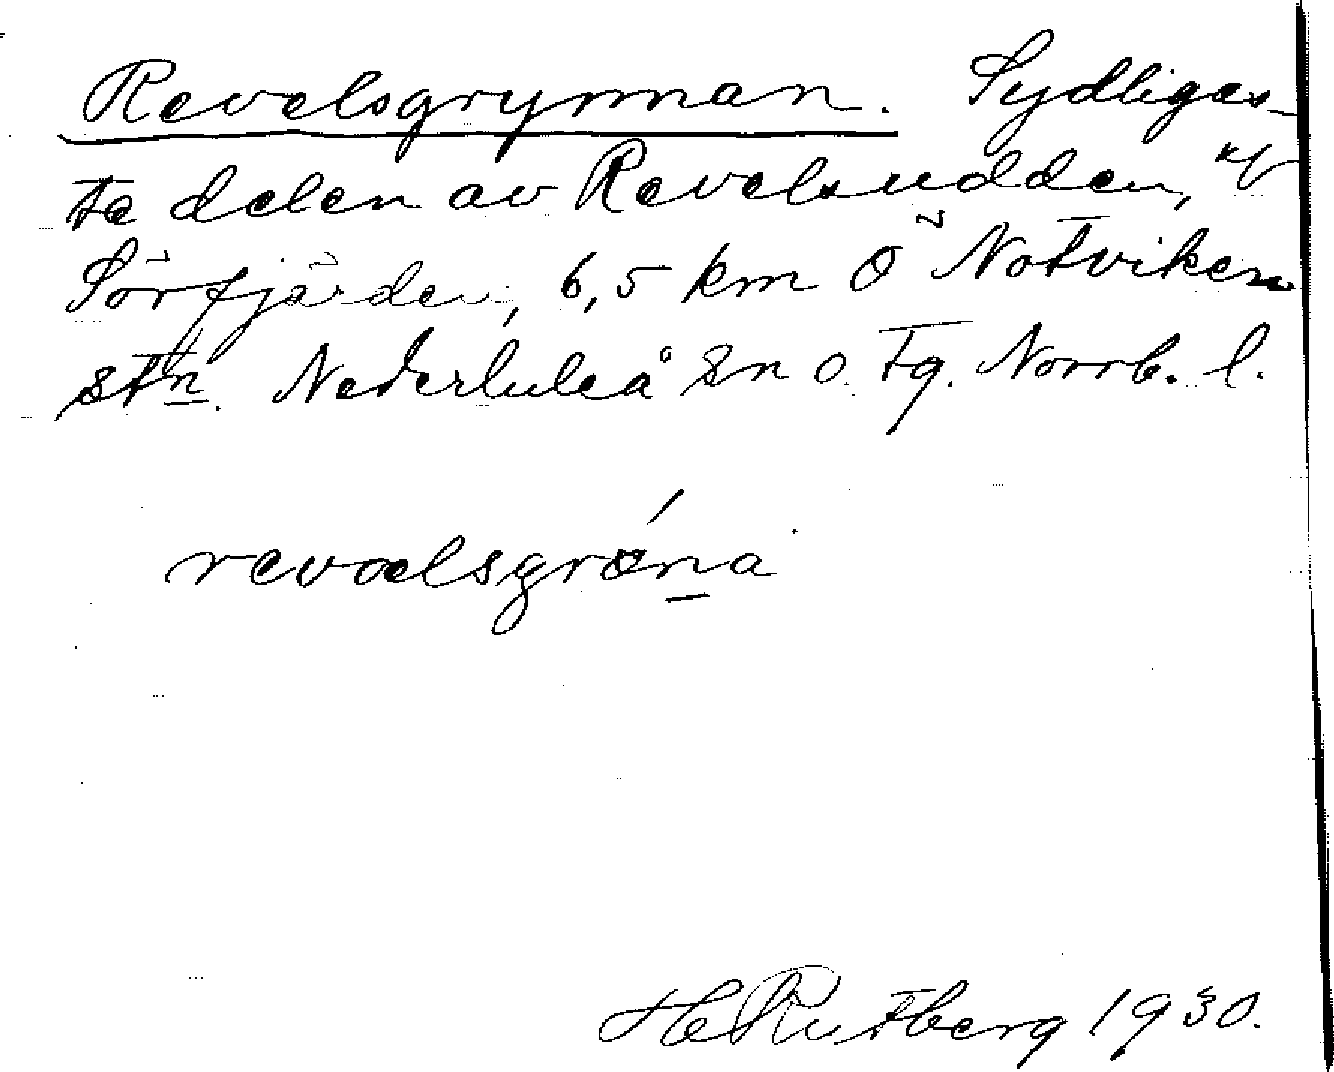 Revelsgrynnan. Sydligas-
te delen av Revelsudden, v
Sörfjärden, 6,5 km Ö Notviken
stn. Nederluleå sn o. tg. Norrb. l.
revælsgrǿna
H Rutberg 1930.